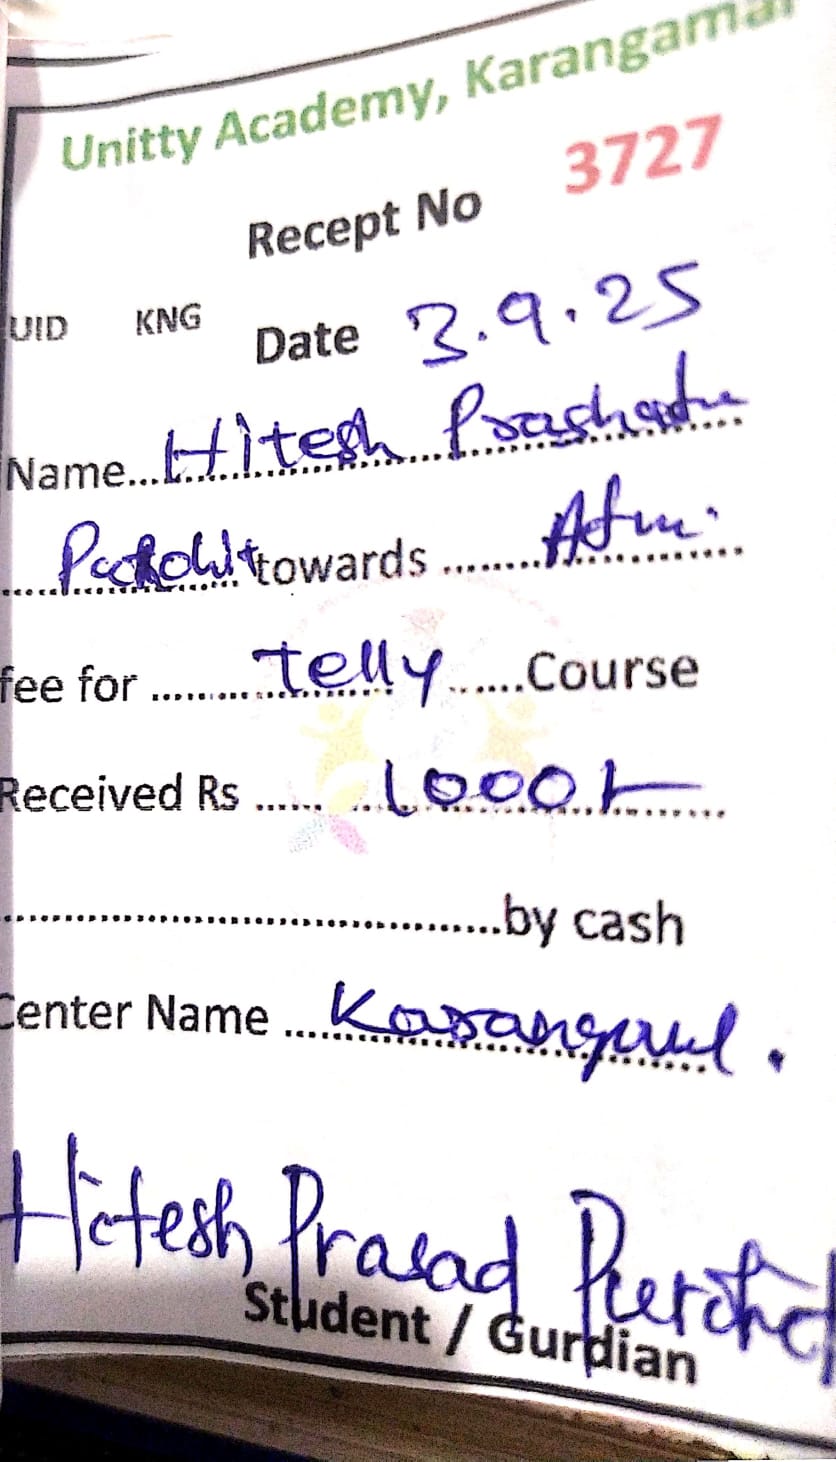 Unitty Academy, Karangamal
Recept No 3727
UID KNG Date 3.9.25
Name... Hitesh
towards ........ Adm.
fee for ......... Telly ......Course
Received Rs ...... 1000/-
.......................................by cash
Center Name ....
Hitesh Prasad
Student / Gurdian